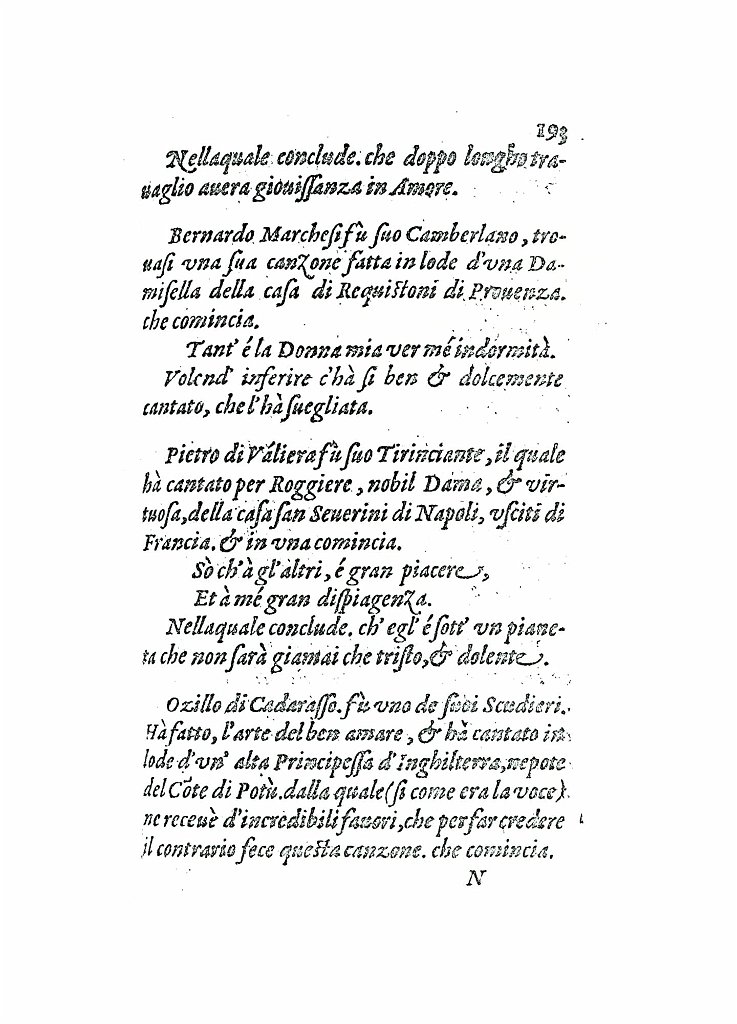 193
Nellaquale conclude. che doppo longho tra-
uaglio auera giouiſſanza in Amore.
Bernardo Marcheſi fù ſuo Camberlano, tro-
uaſi vna ſua canzone fatta in lode d'vna Da-
miſella della caſa di Requiſtoni di Prouenza.
che comincia.
Tant' é la Donna mia ver mé indormità.
Volend' inferire c'hà ſi ben & dolcemente
cantato, che l'hà ſuegliata.
Pietro di Válieraſù ſuo Tirinciante, il quale
hà cantato per Roggiere, nobil Dama, & vir-
tuoſa, della caſa ſan Seuerini di Napoli, vſciti di
Francia. & in vna comincia.
Sò ch'à gl'altri, é gran piacere,
Et à mé gran diſpiagenza.
Nellaquale conclude. ch' egl' é ſott' vn piane-
ta che non ſarà giamai che triſto, & dolente.
Ozillo di Cadaraſſo. fù vno de ſuoi Scudieri.
Hà fatto, l'arte del ben amare, & hà cantato in
lode d'vn' alta Principeſſa d'Inghilterra, nepote
del Cōte di Potù. dalla quale (ſi come era la voce)
ne receuè d'incredibili fauori, che per far credere
il contrario fece queſta canzone. che comincia.
N